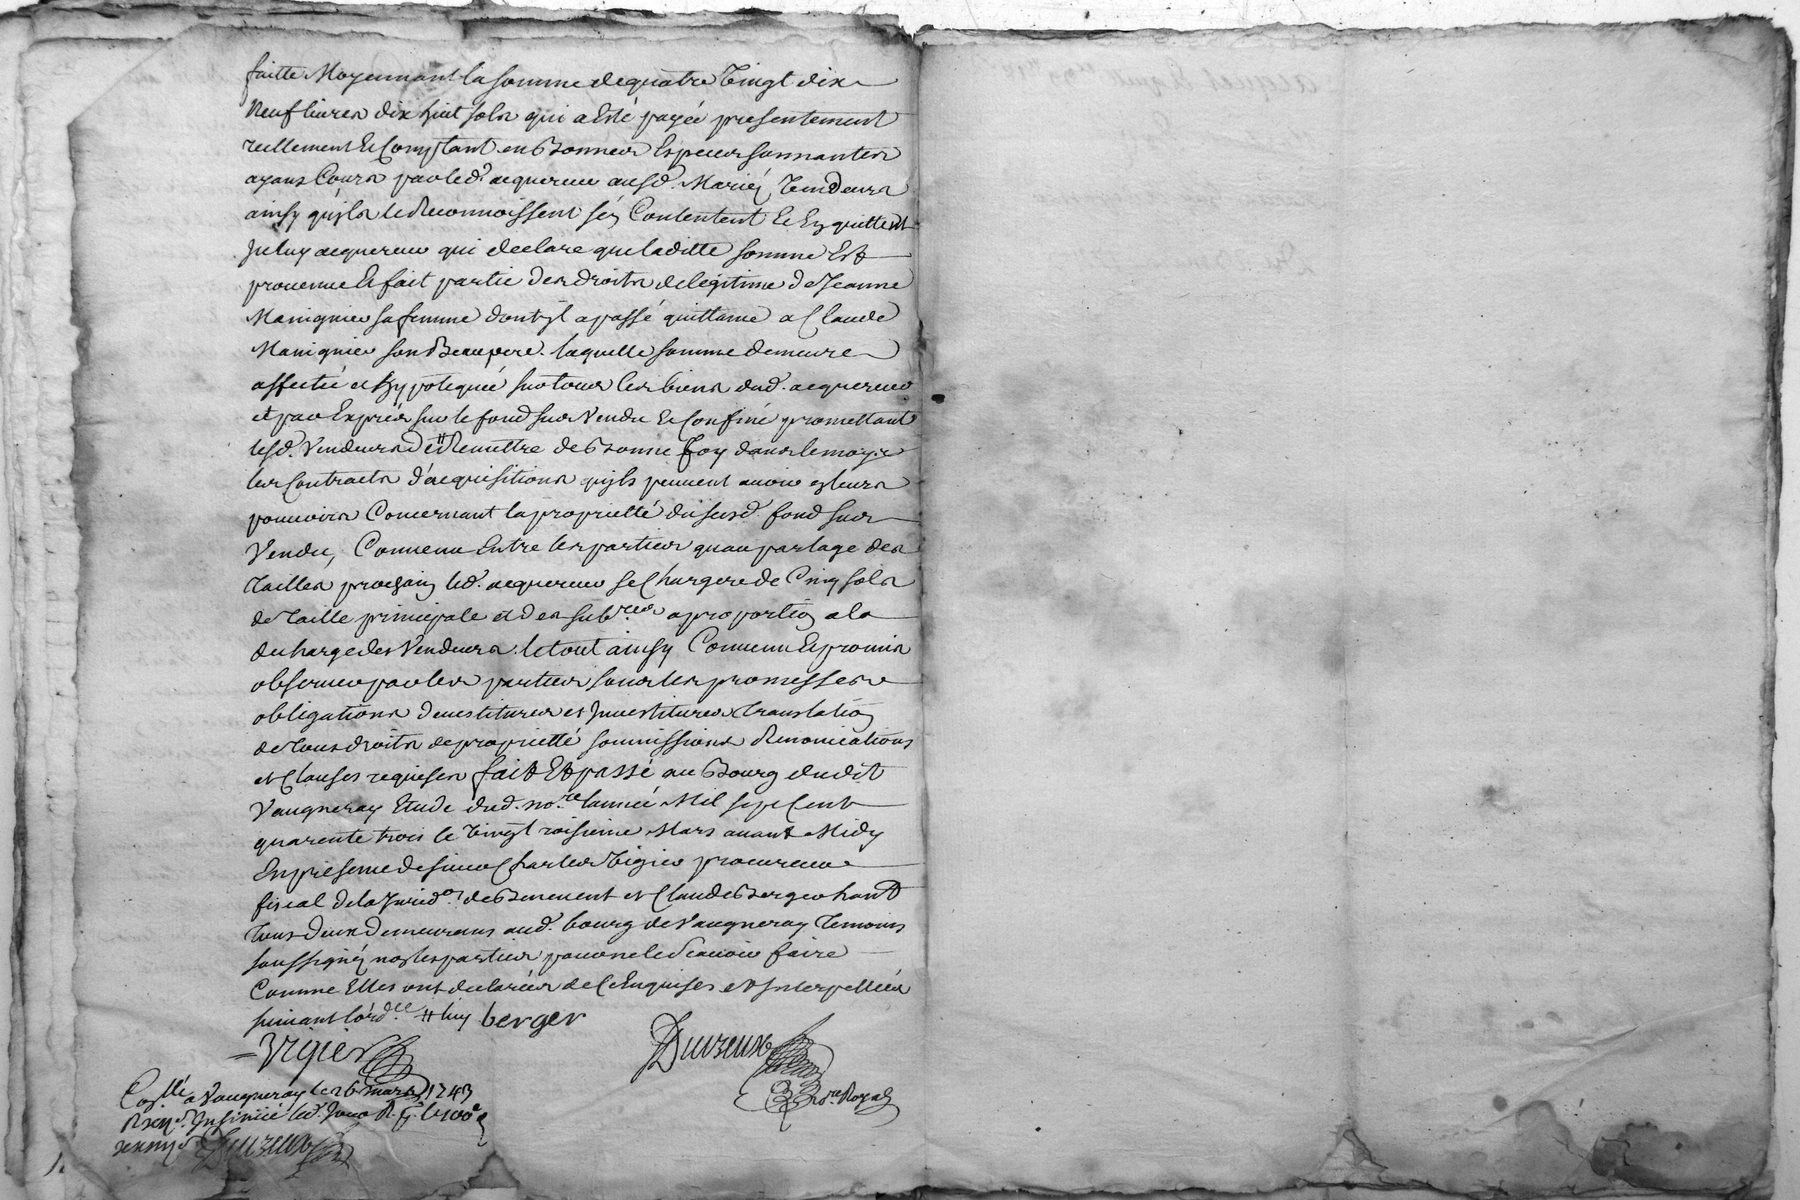 faitte Moyennant la somme de quatre vingt dix
neuf livres dix huit sols qui a esté payée presentement
reellement et Comptant en Bonnes Especes sonnantes
ayans Cours par led. acquereur ausd. Mariéz Vendeurs
ainsy qu'jls le Reconnoissent s'en Contentent et En quittent
jceluy acquereur qui declare que laditte somme Est
provenue et fait partie des droits de legitime de Jeanne
Manignier sa femme dont jl a passé quittance a Claude
Manignier son Beaupere. laquelle somme demeure
affectée et hypotequée sur tous les biens dud. acquereur
et par Exprés sur le fond sus Vendu et Confiné promettant
lesd. Vendeurs de # Remettre de Bonne foy dans le mois
les Contracts d'acquisitions qujls peuvent avoir et leurs
pouvoirs Concernant la proprietté du susd. fond sus
Vendu, Convenu Entre les parties qu'au partage des
tailles prochain led. acquereur se Chargera de Cinq sols
de taille principale et des subres a proportion a la
decharge des Vendeurs. le tout ainsy Convenu et promis
observer par les parties sous les promesses
obligations devestitures et jnvestitures translation
de tous droits de proprietté soumissions Renonciations
et Clauses requises fait Et passé au Bourg dudit
Vaugneray Etude dud. nore. l'année Mil sept Cent
quarente trois le vingt troisieme Mars avant Midy
En presence de sieur Charles Vigier procureur
fiscal de la Juridon. de Benevent et Claude Berger hant
tous deux demeurans aud. bourg de Vaugneray temoins
soussignéz non les parties pour ne le scavoir faire
Comme Elles ont declarées de Ce Enquises et Interpellées
suivant l'ordce # luy berger
Vigier
Duvreux
nore Royal
Conllé a Vaugneray le 26 mars 1743